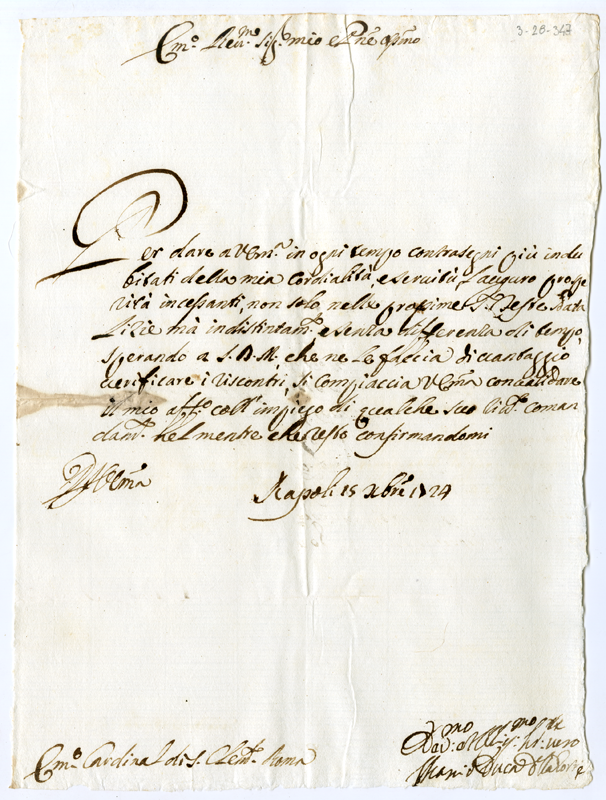 3-28-347
Em.o Reu.mo Sig.r mio e Pne Oss.mo
Per dare a V Em.a in ogni tempo contrasegni più indu
bitati della mia cordialità, e seruitù, l'auguro prospe
rità incessanti, non solo nelle prossime S.te feste Nata
lizie, mà indistintam.te e senza differenza di tempo,
sperando a S. D. M. che ne le faccia di uantaggio
uerificare i riscontri, si compiaccia V Em.a
il mio aff.to coll' impiego di qualche suo coman
dam.to nel mentre che resto confirmandomi
D V Em.a
Napoli 15 Xbre 1724
Em.o Cardinal di S. Clem.te Roma
mo mo
Duca